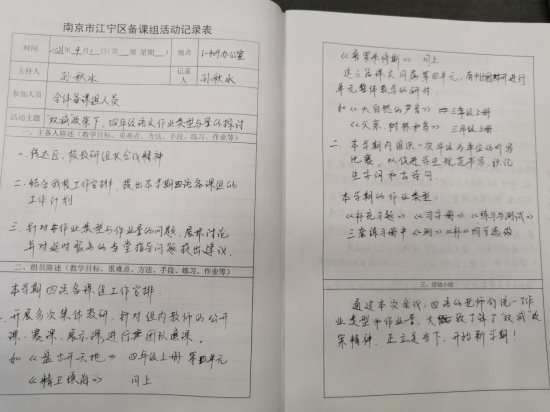 南京市江宁区备课组活动记录表
时间 2021年9月1日(第 周 星期 )
地点 1-409办公室
主持人 孙秋水
记录人 孙秋水
参加人员 全体备课组人员
活动主题 "双减"政策下,四年级语文作业类型与量的探讨
一、主备人陈述(教学目标、重难点、方法、手段、练习、作业等)
一、传达区、校教研组长会议精神
二、结合我校工作安排,提出本学期四语备课组的
工作计划
三、针对本作业类型与作业量的问题,展开讨论
并对延时服务的当堂指导问题提出建议.
二、组员陈述(教学目标、重难点、方法、手段、练习、作业等)
本学期四语备课组工作安排.
开展多次集体教研,针对组内教师的公开
课、赛课、展示课进行
如《盘古开天地》 四年级上册 第四单元
《精卫填海》 同上
《普罗米修斯》 同上
这三篇课文同属第四单元,
单元整体教学的研讨.
如《大自然的声音》 三年级上册
《父亲、树林和鸟》 三年级上册.
二 本学期内组织一次年级为单位的听写
比赛,以促进学生规范书写,识记
生字词和古诗词
本学期的作业类型
《补充习题》《习字册》《练习与测试》
三套练习册中《测》《补》均可选做
三、活动小结
通过本次会议,四语的老师们统一了作
业类型和作业量,大致了解了"双减"政
策精神,正立足当下,开始新学期!